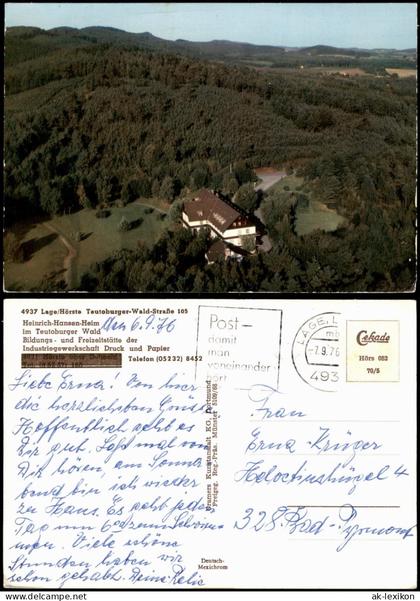 4937 Lage/Hörste Teutoburger-Wald-Straße 105
Heinrich-Hansen-Heim
im Teutoburger Wald
Bildungs- und Freizeitstätte der
Industriegewerkschaft Druck und Papier
Telefon (05232) 8452
den 6.9.76
Liebe Erna! Von hier
die herzlichsten Grüße
Hoffentlich geht es
Dir gut. Laß mal von
Dir hören, am Sonna-
bend bin ich wieder
zu Haus. Es geht jeden
Tag um 6
Viele schöne
Stunden haben wir
schon gehabt. Deine
Cramers Kunstanstalt KG, Dortmund
Freigeg. Reg.-Präs. Münster
Deutsch-
Mexichrom
Post –
damit
man
voneinander
hört
LAGE, L
-7.9.76
493
Cekade
Hörs 052
70/5
Frau
Erna Krüger
328 Bad-Pyrmont
© ak-ansichtskarten.de
ak-lexikon.com